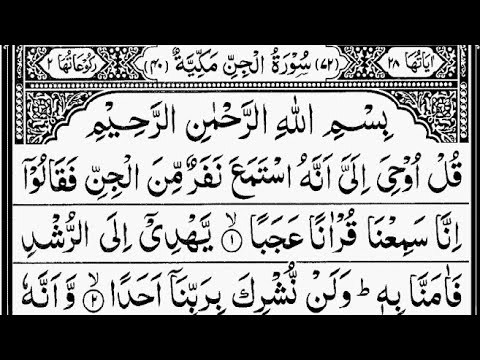 اٰیَاتُهَا ۲۸ (۷۲) سُوْرَةُ الْجِنِّ مَكِّیَّةٌ (۴۰) رُكُوْعَاتُهَا ۲
بِسْمِ اللهِ الرَّحْمٰنِ الرَّحِیْمِ
قُلْ اُوْحِیَ اِلَیَّ اَنَّهُ اسْتَمَعَ نَفَرٌ مِّنَ الْجِنِّ فَقَالُوْۤا
اِنَّا سَمِعْنَا قُرْاٰنًا عَجَبًا ۙ﴿۱﴾ یَّهْدِیْۤ اِلَی الرُّشْدِ
فَاٰمَنَّا بِهٖ ؕ وَلَنْ نُّشْرِكَ بِرَبِّنَاۤ اَحَدًا ۙ﴿۲﴾ وَّاَنَّهٗ